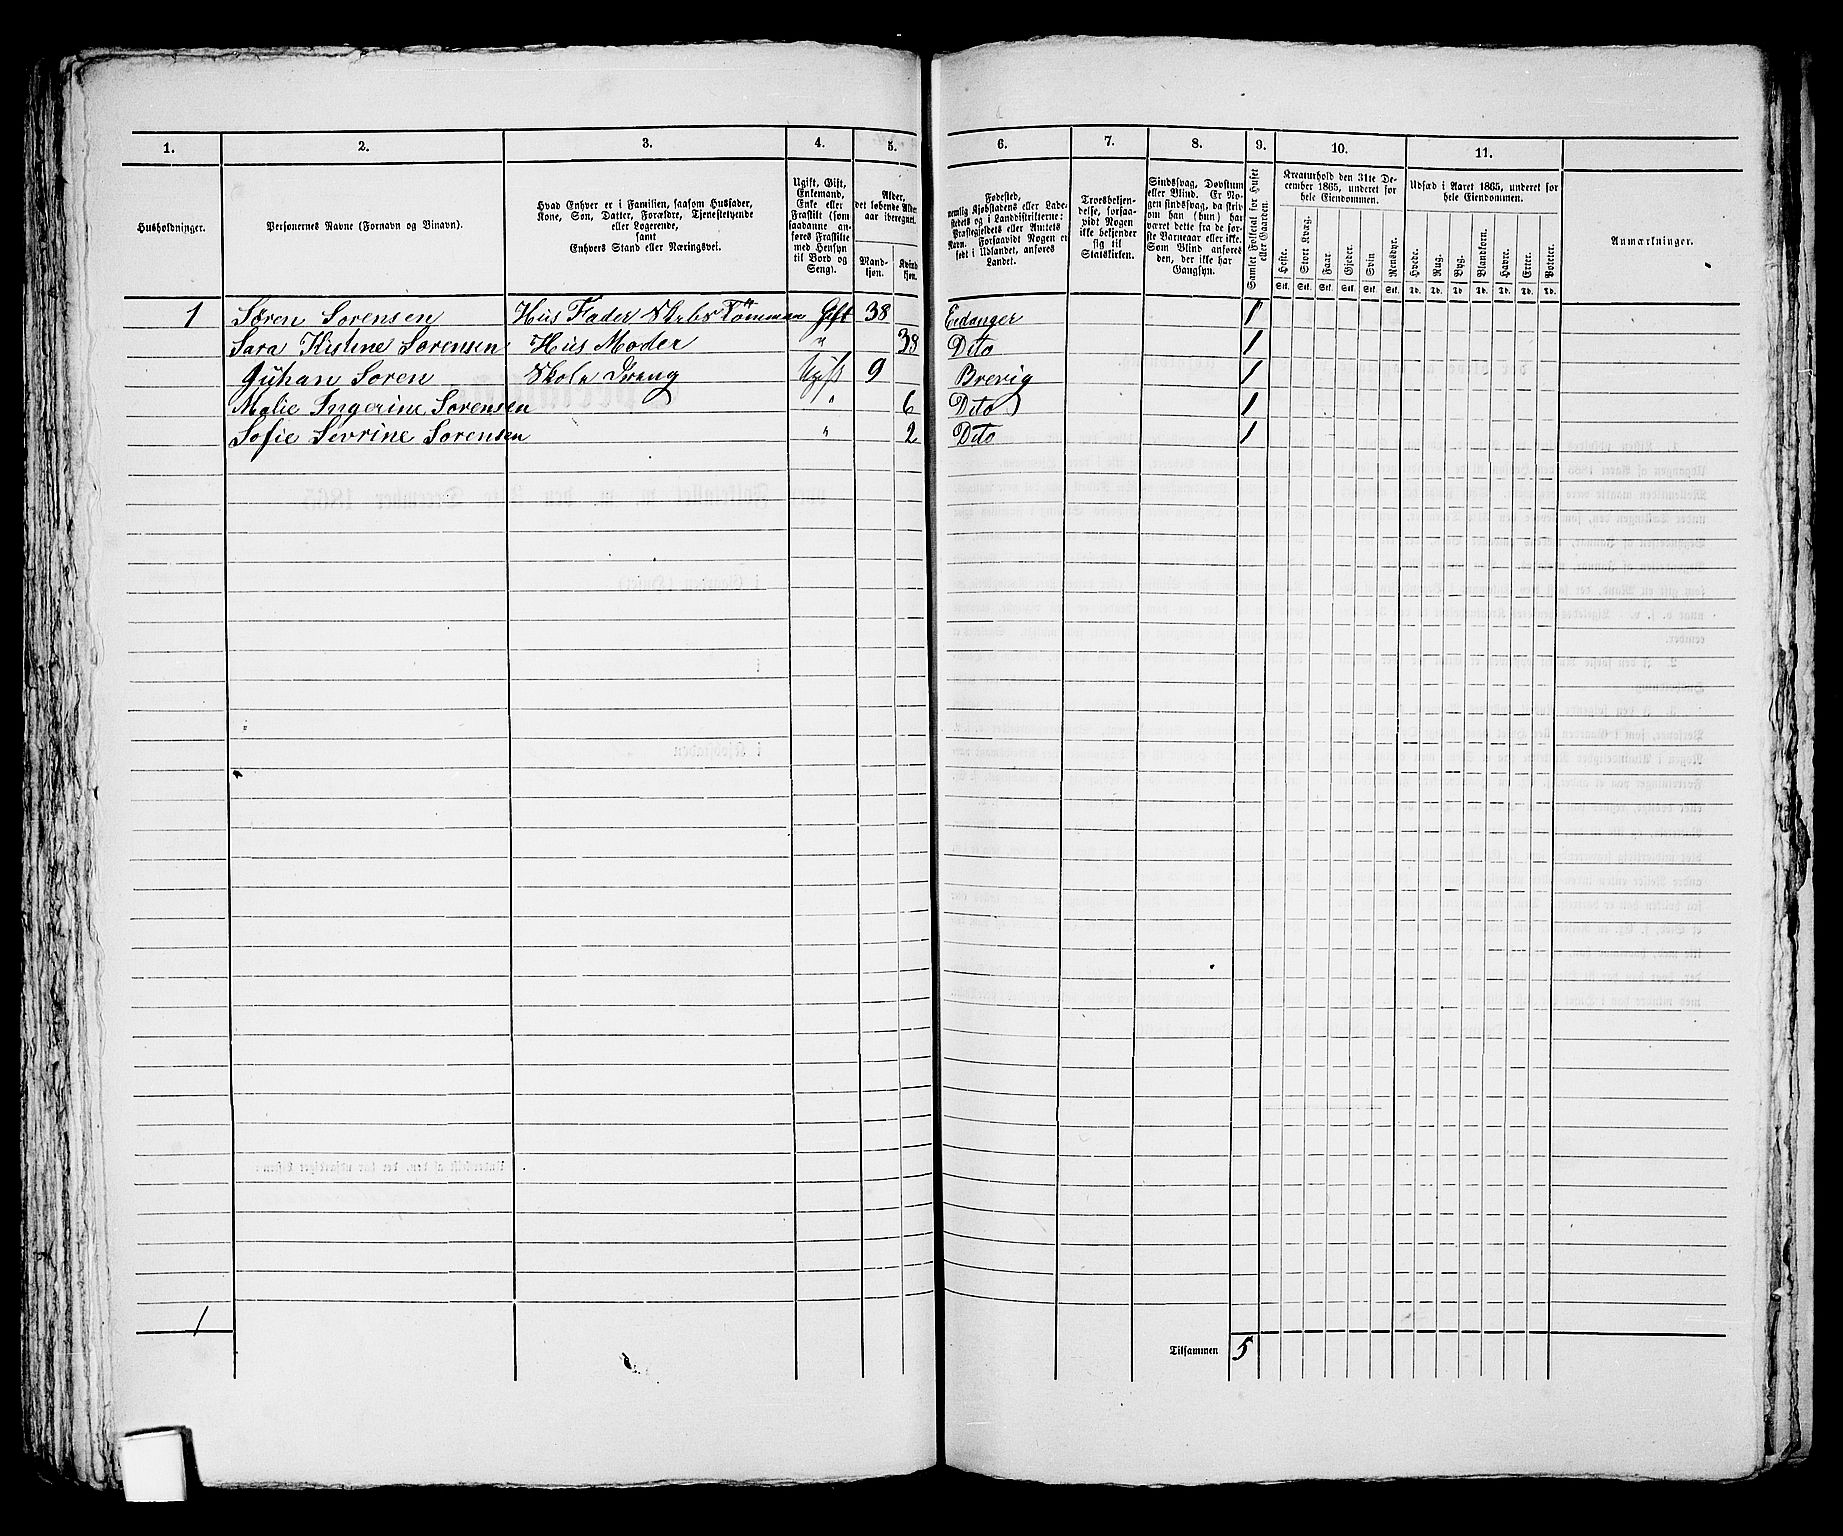 1. 2. 3. 4. 5. 6. 7. 8. 9. 10. 11.
Husholdninger.
Personernes Navne (Fornavn og Binavn).
Hvad Enhver er i Familien, saasom Husfader,
Kone, Søn, Datter, Forældre, Tjenestetyende
eller Logerende,
samt
Enhvers Stand eller Næringsvei.
Ugift, Gift,
Enkemand,
Enke eller
Fraskilt (som
saadanne an-
føres Fraskilte
med Hensyn
til Bord og
Seng).
Alder,
det løbende Alders-
aar iberegnet.
Mand-
kjøn.
Kvind
kjøn.
Fødested,
nemlig Kjøbstadens eller Lade-
stedets og i Landdistrikterne:
Præstegjeldets eller Amtets
Navn. Forsaavidt Nogen er
født i Udlandet, anføres
Landet.
Troesbekjen-
delse, forsaa-
vidt Nogen
ikke bekjender
sig til
Statskirken.
Sindssvag, Døvstum
eller Blind. Er No-
gen sindssvag, da skriv
om han (hun) har
været dette fra de før-
ste Barneaar eller ikke.
Som Blind anføres
den, der ikke har
Gangsyn.
Samlet Folketal for Huset
eller Gaarden.
Kreaturhold den 31te De-
cember 1865, underet for
hele Eiendommen.
Heste. Stort Kvæg. Faar. Gjeder. Svin Rensdyr.
Stk. Stk. Stk. Stk. Stk. Stk.
Udsæd i Aaret 1865, underet for
hele Eiendommen.
Hvede. Rug. Byg. Blandkorn. Havre. Erter. Poteter.
Td. Td. Td. Td. Td. Td. Td.
Anmærkninger.
1 Søren Sorensen Hus Fader Skibs Tömman Gift 38 Eedanger 1
Sara Kistine Sorensen Hus Moder " 38 Dito 1
Juhan Soren Skole Dreng Ugift 9 Brevig 1
Malie Ingerine Sorensen " 6 Dito 1
Sofie Sevrine Sorensen " 2 Dito 1
1
Tilsammen 5